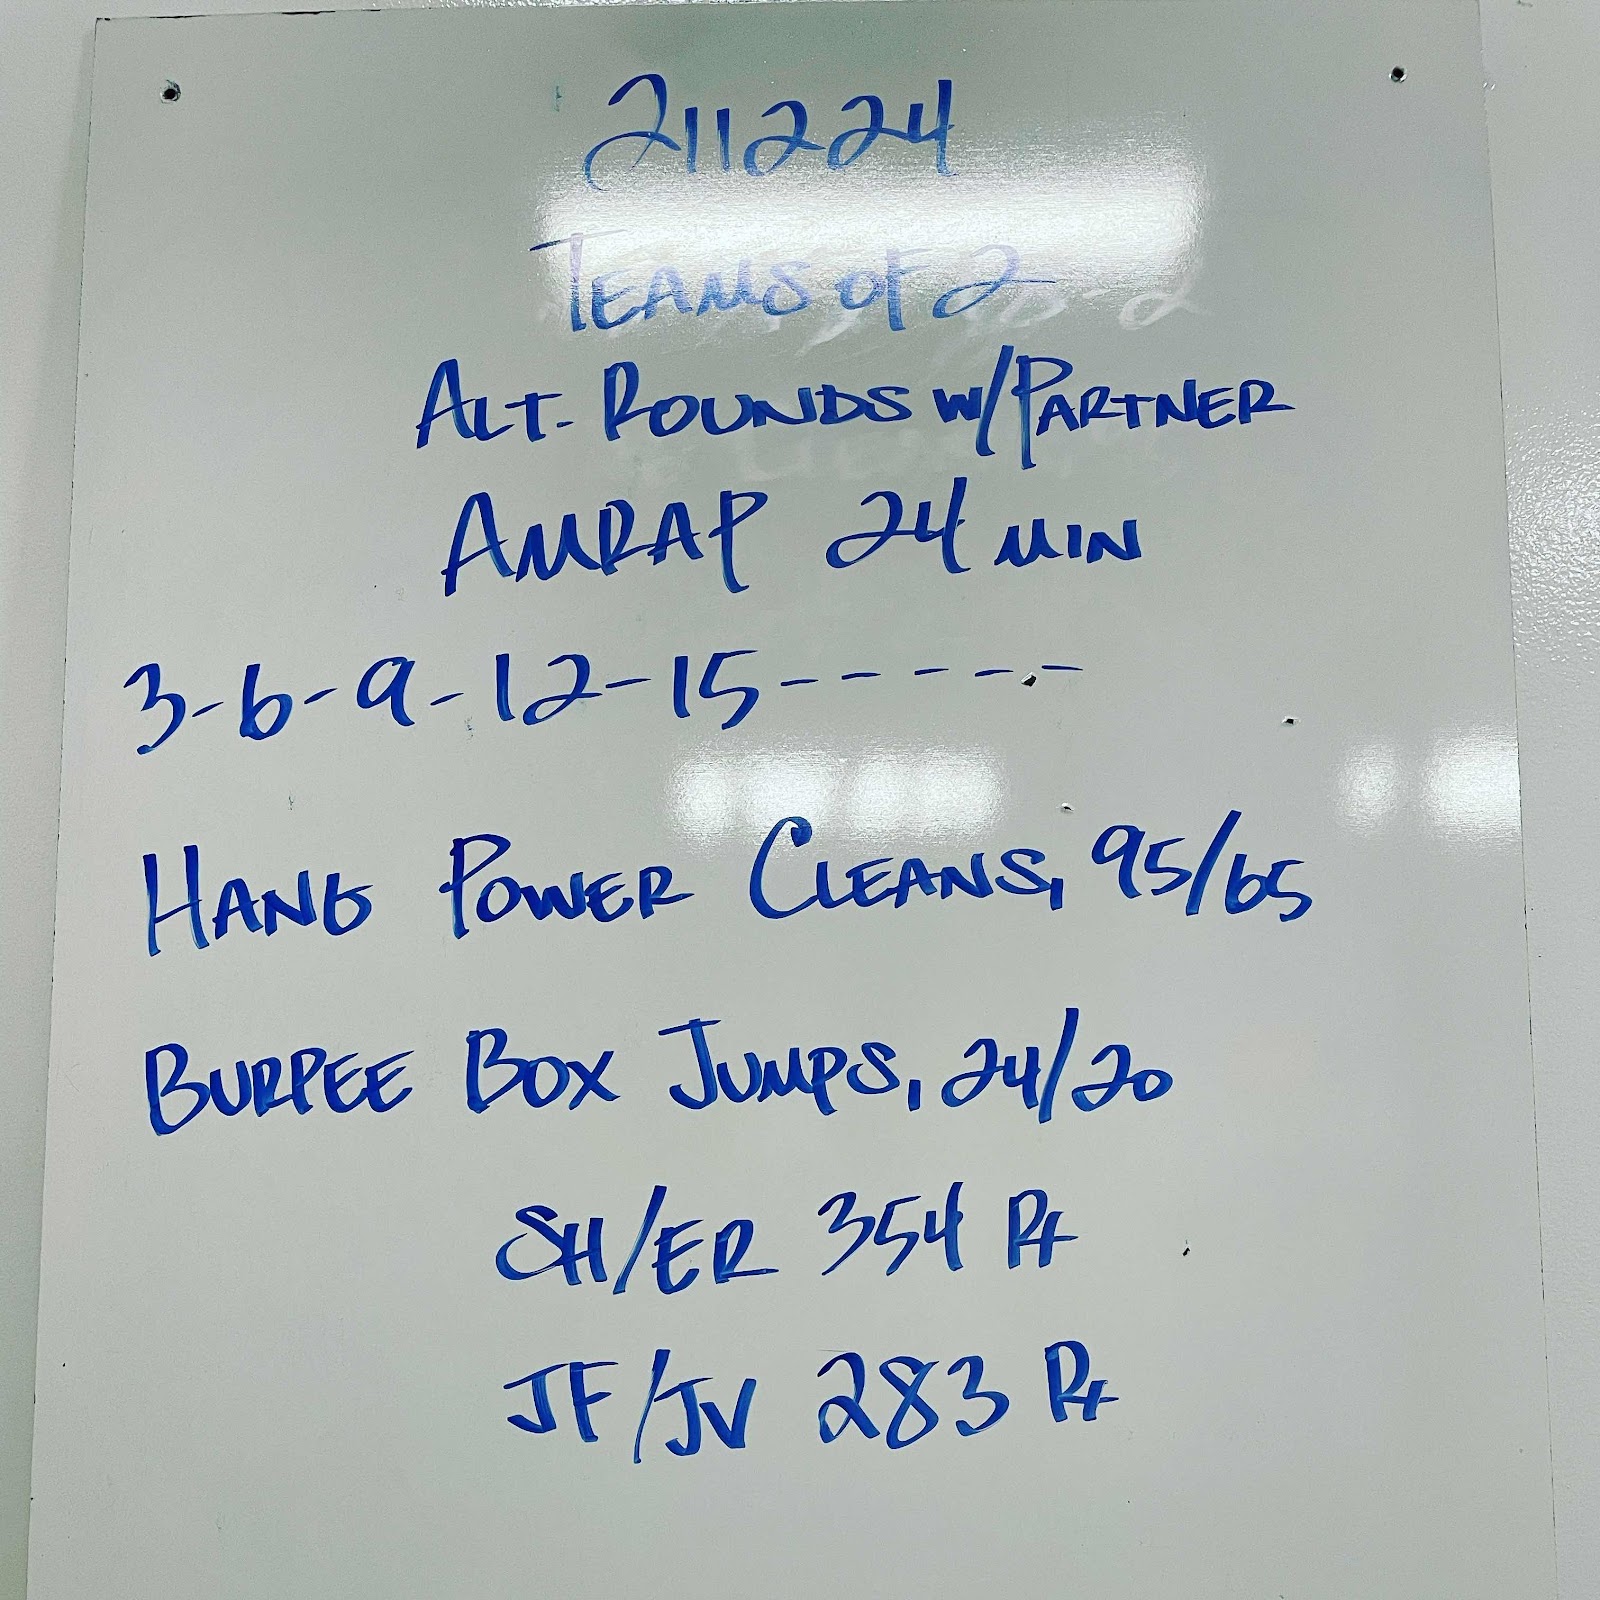 211224
TEAMS OF 2
ALT. ROUNDS W/PARTNER
AMRAP 24 MIN
3-6-9-12-15------
HANG POWER CLEANS, 95/65
BURPEE BOX JUMPS, 24/20
SH/ER 354 Rx
JF/JV 283 Rx